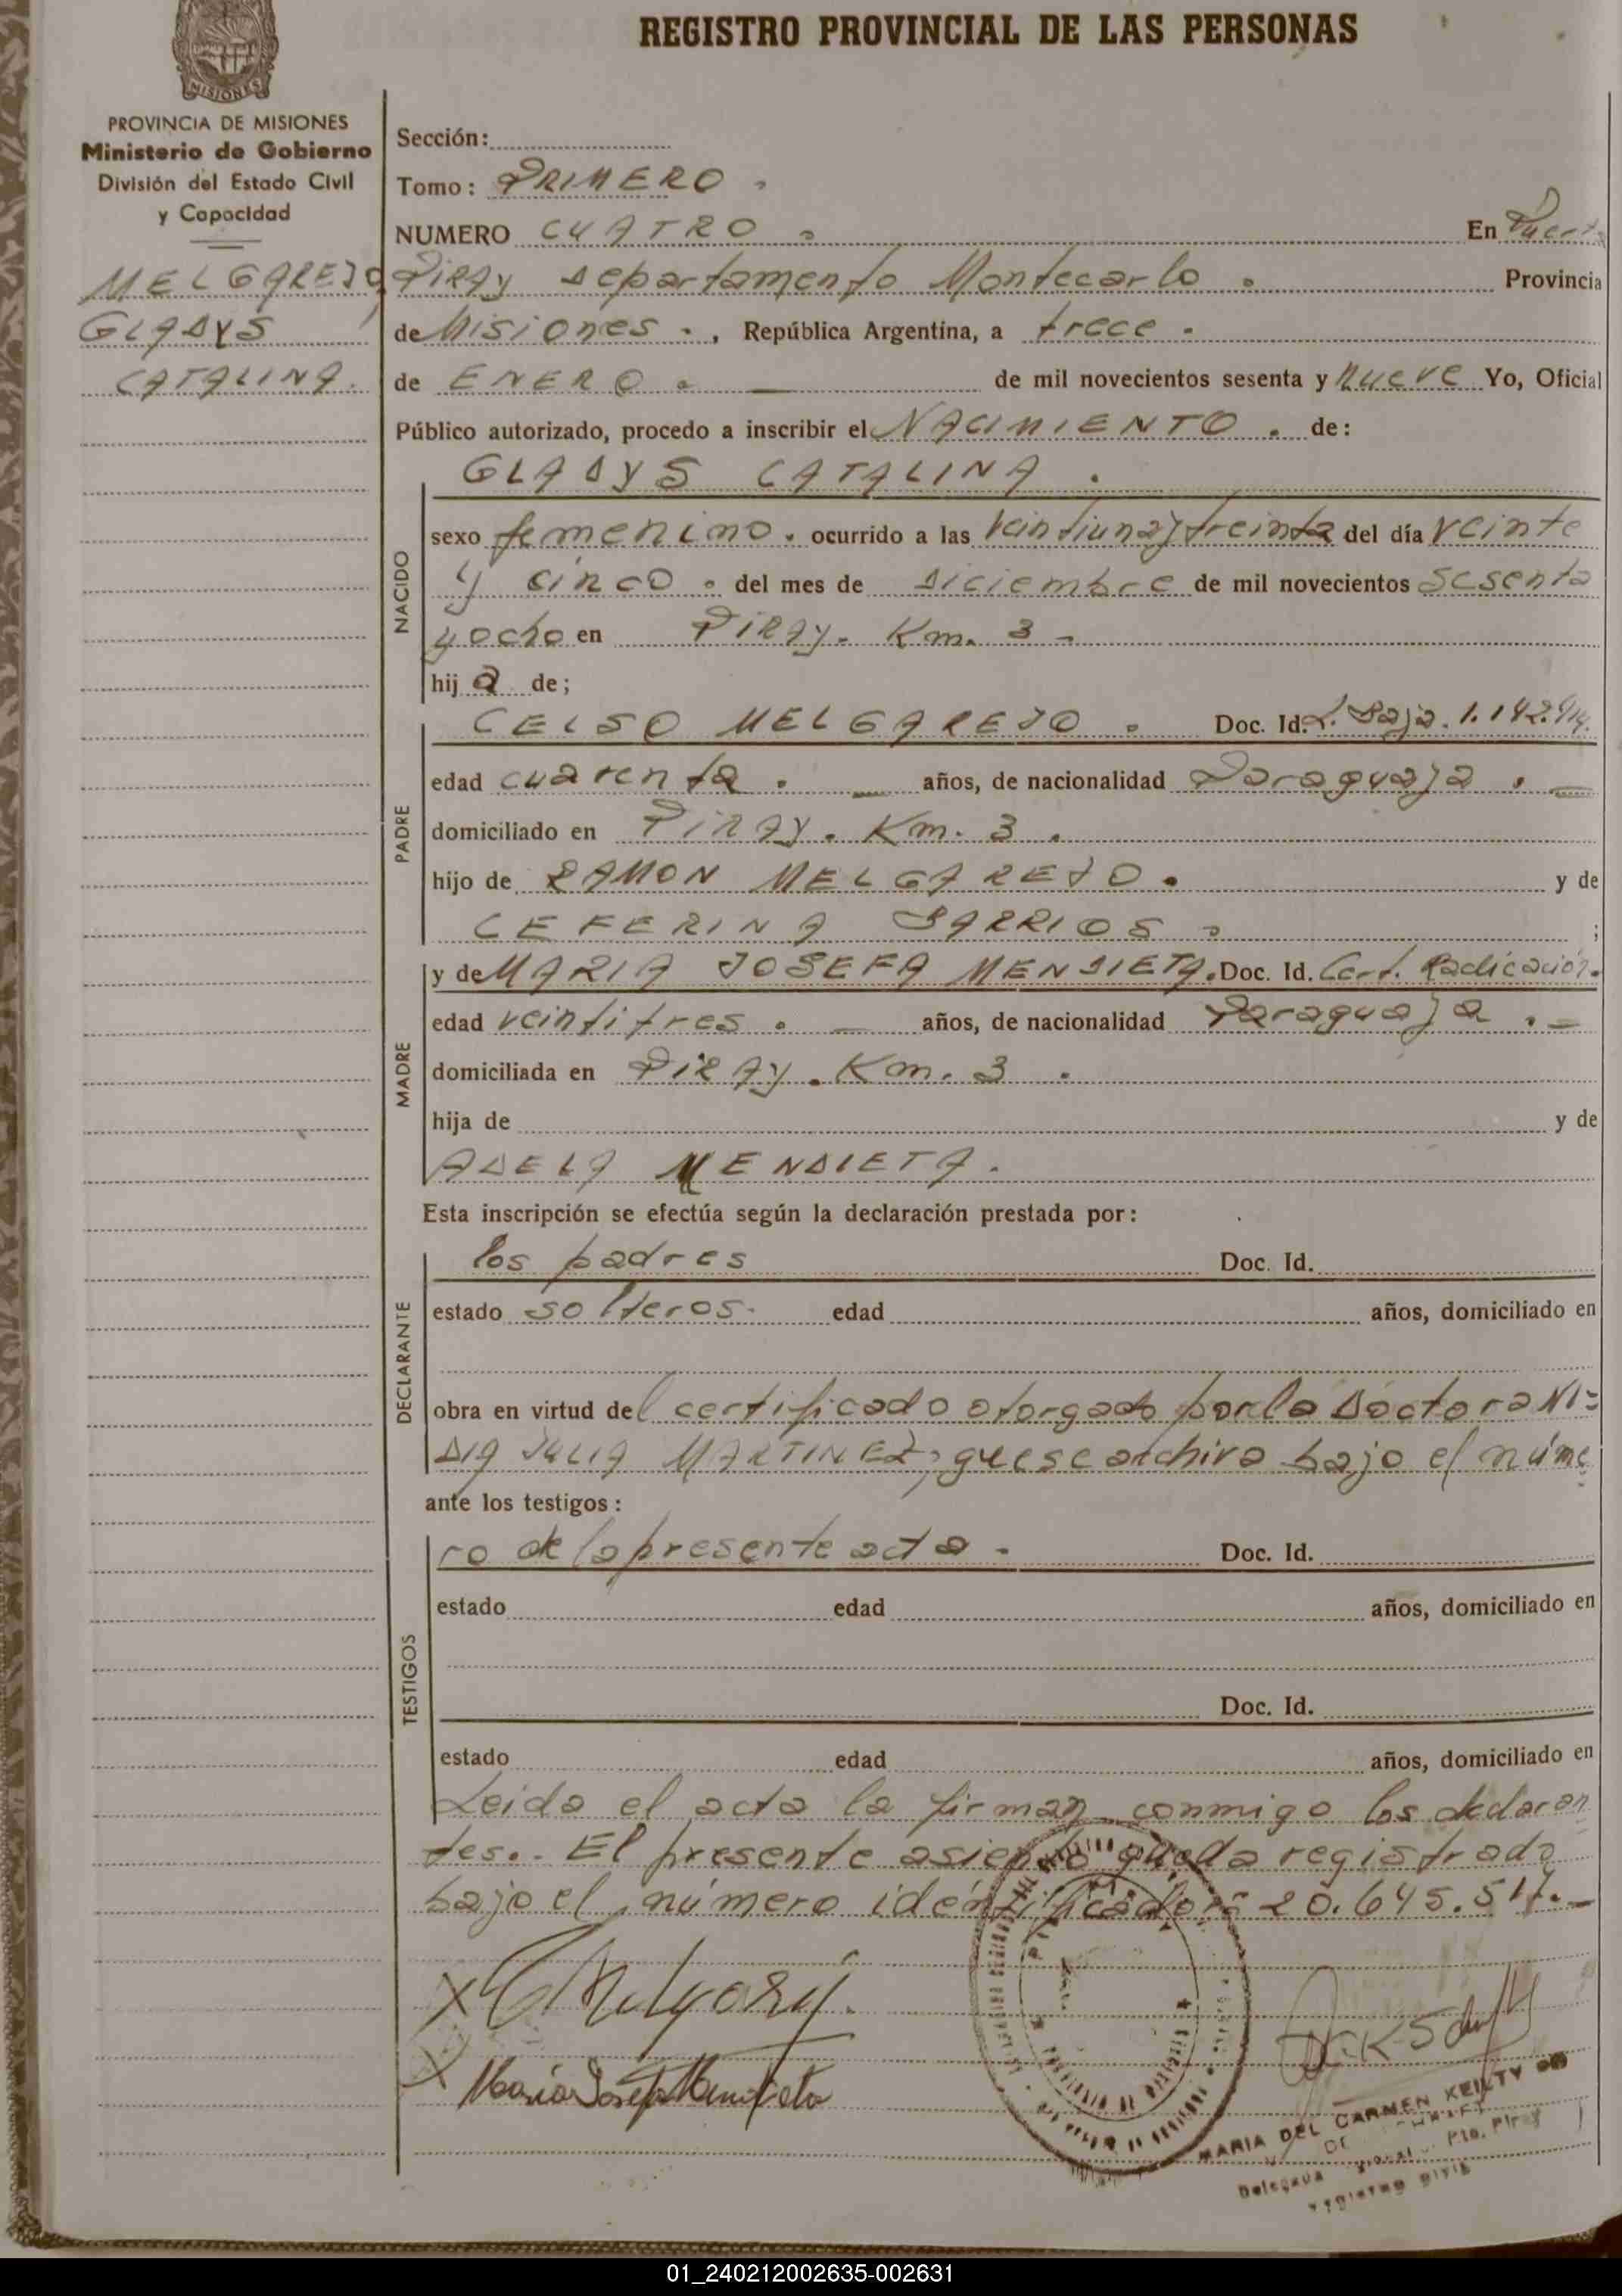 REGISTRO PROVINCIAL DE LAS PERSONAS
MISIONES
PROVINCIA DE MISIONES
Ministerio de Gobierno
División del Estado Civil
y Capacidad
MELGAREJO,
GLADYS
CATALINA.
Sección:
Tomo: PRIMERO.
NUMERO CUATRO. En Puerto
Piray departamento Montecarlo. Provincia
de Misiones., República Argentina, a trece.
de ENERO. de mil novecientos sesenta y nueve Yo, Oficial
Público autorizado, procedo a inscribir el NACIMIENTO. de:
GLADYS CATALINA.
NACIDO
sexo femenino. ocurrido a las veintiuna y treinta del día veinte
y cinco. del mes de diciembre de mil novecientos sesenta
y ocho en PIRAy. Km. 3.
hij a de;
PADRE
CELSO MELGAREJO. Doc. Id. L. Baja. 1.142.914.
edad cuarenta. años, de nacionalidad Paraguaya.
domiciliado en PIRAy. Km. 3.
hijo de RAMON MELGAREJO. y de
CEFERINA BARRIOS. ;
MADRE
y de MARIA JOSEFA MENDIETA. Doc. Id. Cert. Radicación.
edad veintitres. años, de nacionalidad Paraguaya.
domiciliada en PIRAy. Km. 3.
hija de y de
ADELA MENDIETA.
Esta inscripción se efectúa según la declaración prestada por:
DECLARANTE
los padres Doc. Id.
estado solteros. edad años, domiciliado en
obra en virtud del certificado otorgado por la Doctora NI=
DIA JULIA MARTINEZ, que se archiva bajo el núme
ante los testigos:
TESTIGOS
ro de la presente acta. Doc. Id.
estado edad años, domiciliado en
Doc. Id.
estado edad años, domiciliado en
Leida el acta la firman conmigo los declaran
tes.. El presente asiento queda registrado
bajo el número identificador: 20.645.517.
X
X Maria Josefa Mendieta
MARIA DEL CARMEN KEILTY DE
Delegada Pto. Piray
Registro Civil
01_240212002635-002631